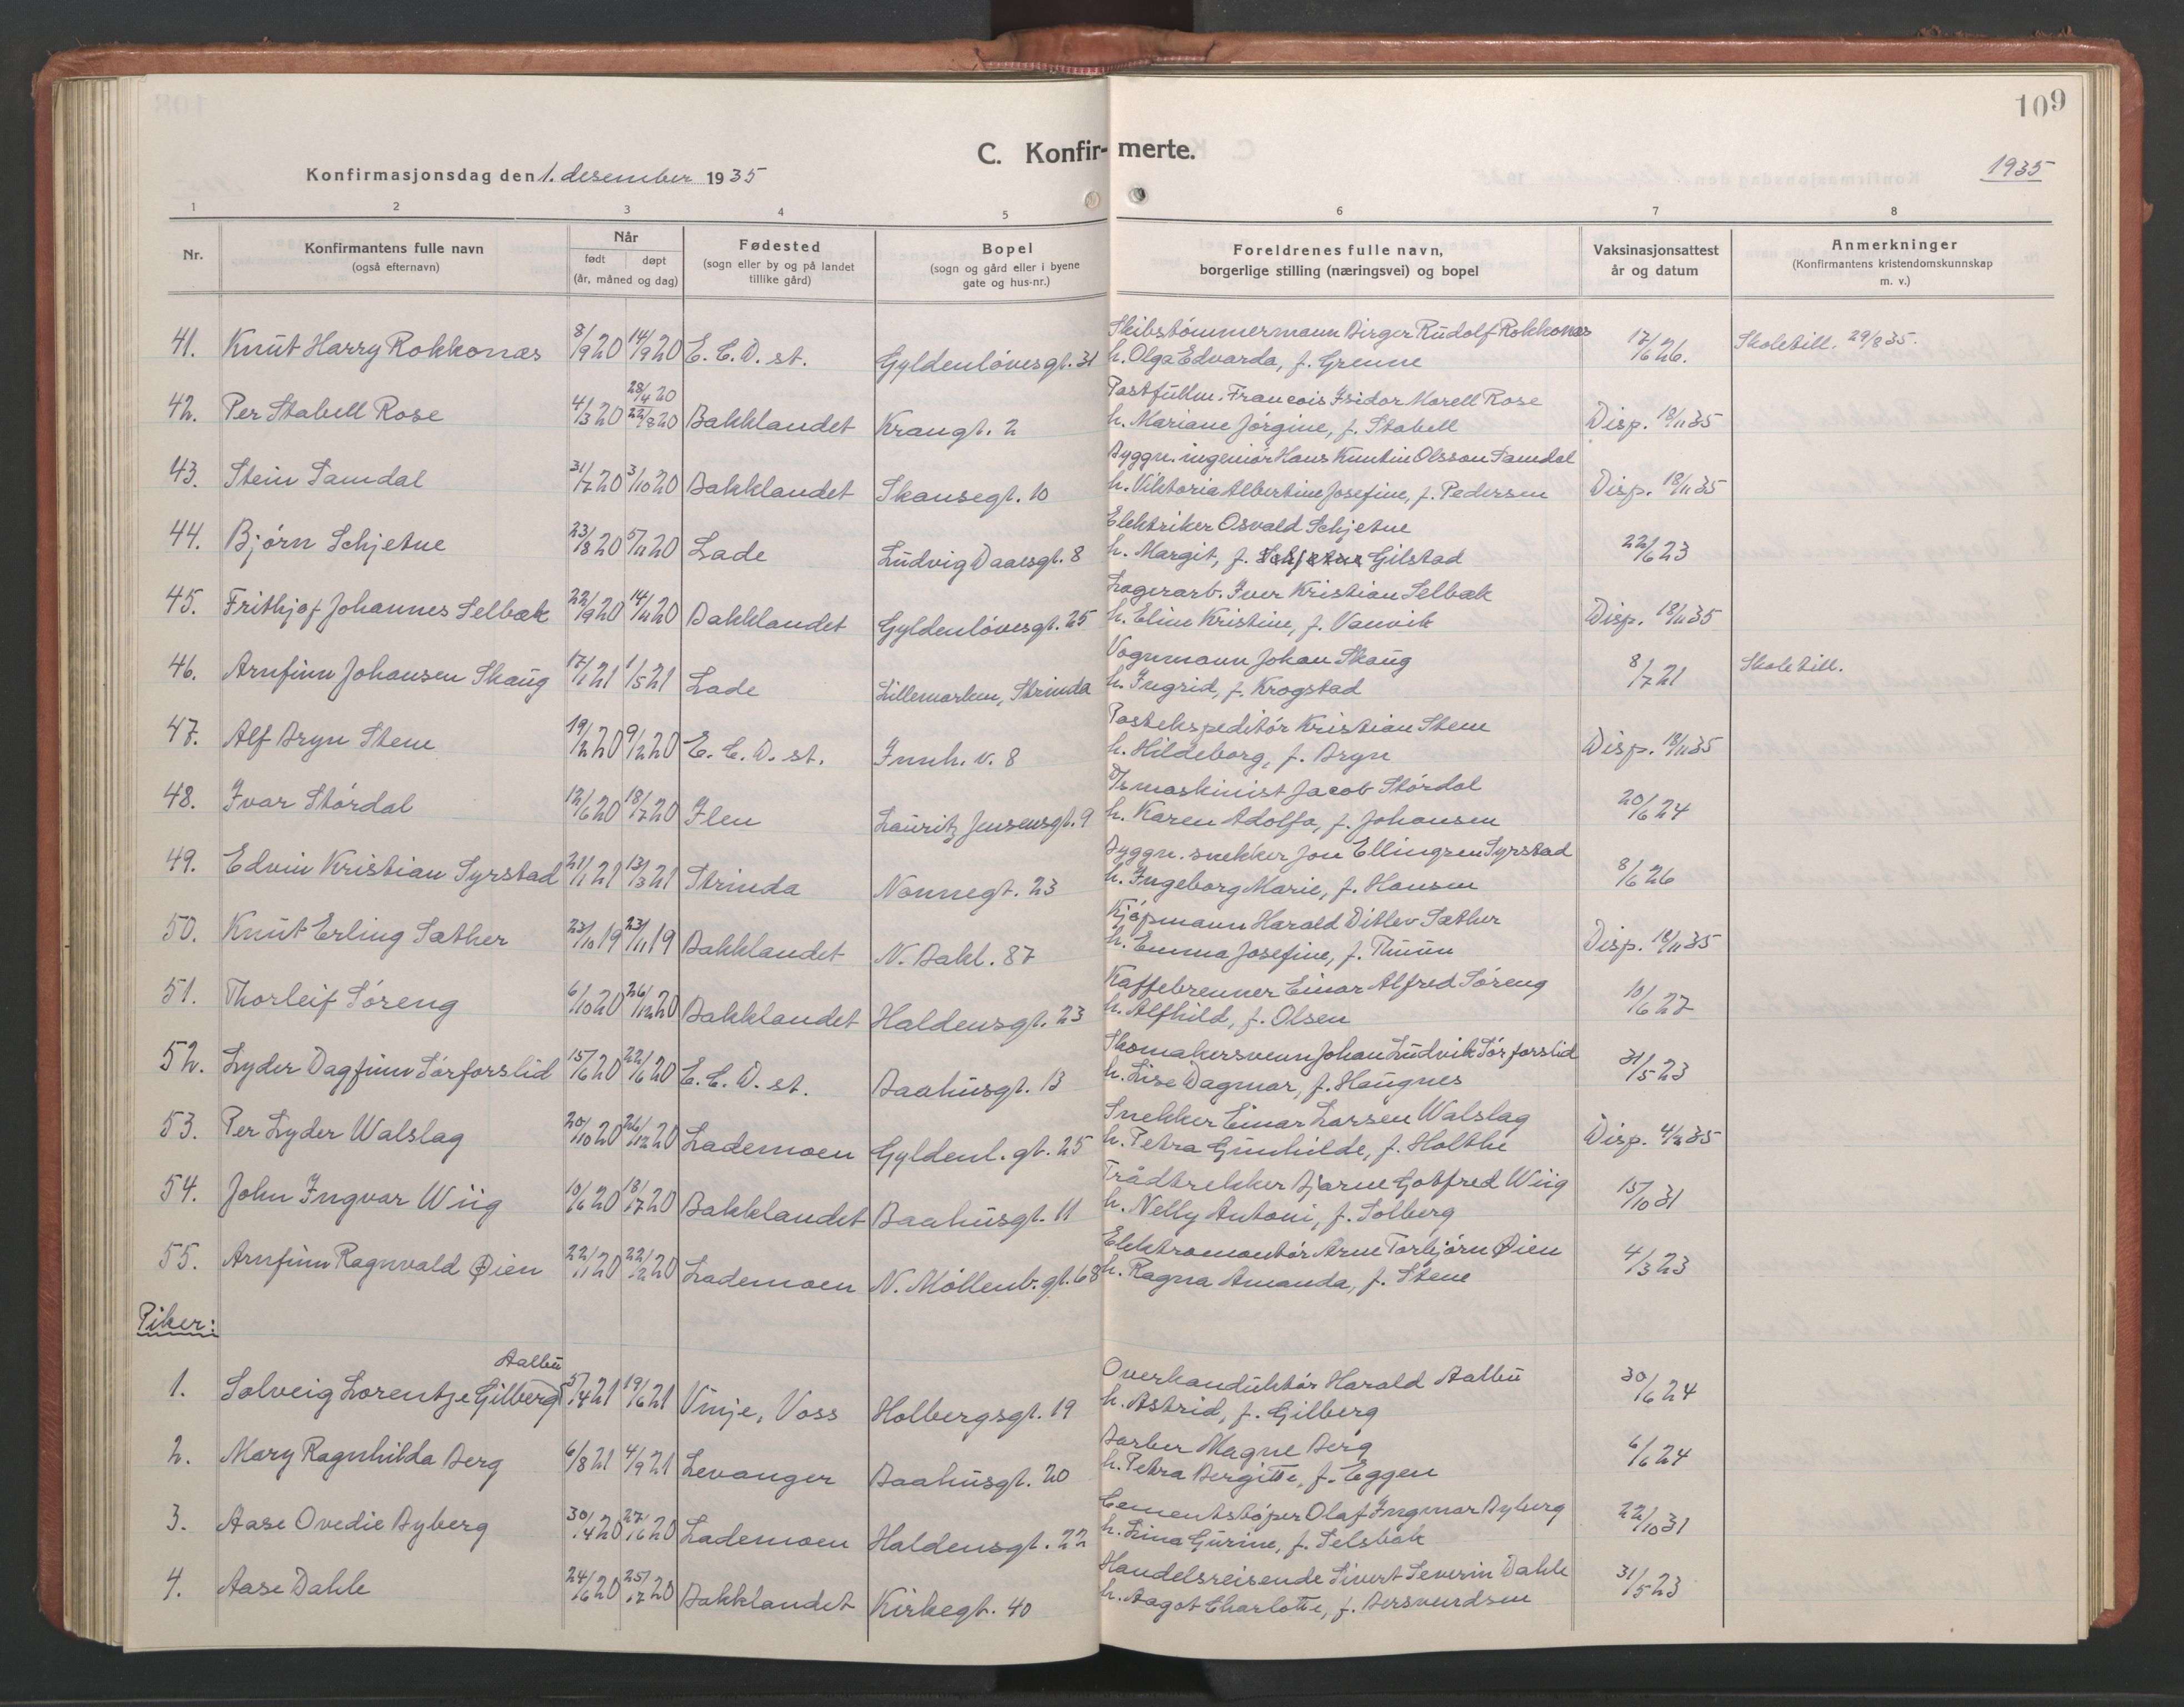 109
C. Konfir- merte.
Konfirmasjonsdag den 1. desember 1935
1935
1 2 3 4 5 6 7 8
Nr. Konfirmantens fulle navn (også efternavn) Når født døpt (år, måned og dag) Fødested (sogn eller by og på landet tillike gård) Bopel (sogn og gård eller i byene gate og hus-nr.) Foreldrenes fulle navn, borgerlige stilling (næringsvei) og bopel Vaksinasjonsattest år og datum Anmerkninger (Konfirmantens kristendomskunnskap m. v.)
41. Knut Harry Rokkones 8/9 20 14/9 20 E. C. D. st. Gyldenløvesgt. 31 Skibstømmermann Birger Rudolf Rokkones
h. Olga Edvarda, f. Grenne 17/6 26. Skoletill. 29/8 35.
42. Per Stabell Rose 4/3 20 28/4 20 22/8 20 Bakklandet Krangt. 2 Postfullm. Francois Isidor Morell Rose
h. Mariane Jørgine, f. Stabell Disp. 18/11 35
43. Stein Samdal 31/7 20 3/10 20 Bakklandet Skansegt. 10 Byggn. ingeniør Hans Kuntin Olsson Samdal
h. Viktoria Albertine Josefine, f. Pedersen Disp. 18/11 35
44. Bjørn Schjetne 23/8 20 5/11 20 Lade Ludvig Daaesgt. 8 Elektriker Osvald Schjetne
h. Margit, f. Schjetne Gilstad 22/6 23
45. Frithjof Johannes Selbæk 22/9 20 14/11 20 Bakklandet Gyldenløvesgt. 25 Lagerarb. Iver Kristian Selbæk
h. Eline Kristine, f. Vanvik Disp. 18/11 35
46. Arnfinn Johansen Skaug 17/1 21 1/5 21 Lade Lillemarken, Strinda Vognmann Johan Skaug
h. Ingrid, f. Krogstad 8/7 21 Skoletill.
47. Alf Bryn Stene 19/2 20 9/12 20 E. C. D. st. Innh. v. 8 Postekspeditør Kristian Stene
h. Hildeborg, f. Bryn Disp. 18/11 35
48. Ivar Størdal 12/6 20 18/7 20 Ilen Lauritz Jensensgt. 9 D/s maskinist Jacob Størdal
h. Karen Adolfa, f. Johansen 20/6 24
49. Edvin Kristian Syrstad 21/1 21 13/3 21 Strinda Nonnegt. 23 Byggn. snekker Jon Ellingsen Syrstad
h. Ingeborg Marie, f. Hansen 8/6 26
50. Knut Erling Sæther 23/10 19 23/11 19 Bakklandet N. Bakl. 87 Kjøpmann Harald Ditlev Sæther
h. Emma Josefine, f. Thuun Disp. 18/11 35
51. Thorleif Søreng 6/10 20 26/12 20 Bakklandet Haldensgt. 23 Kaffebrenner Einar Alfred Søreng
h. Alfhild, f. Olsen 10/6 27
52. Lyder Dagfinn Sørforslid 15/6 20 22/6 20 E. C. D. st. Baahusgt. 13 Skomakersvenn Johan Ludvik Sørforslid
h. Lise Dagmar, f. Haugnes 31/5 23
53. Per Lyder Walslag 20/10 20 26/12 20 Lademoen Gyldenl. gt. 25 Snekker Einar Larsen Walslag
h. Petra Gunhilde, f. Holthe Disp. 4/2 35
54. John Ingvar Wiig 10/6 20 18/7 20 Bakklandet Baahusgt. 11 Trådtrekker Bjarne Gotfred Wiig
h. Nelly Antoni, f. Solberg 15/10 31
55. Arnfinn Ragnvald Øien 22/11 20 22/12 20 Lademoen N. Møllenb. gt. 68 Elektromontør Arne Torbjørn Øien
h. Ragna Amanda, f. Stene 4/3 23
Piker:
1. Solveig Lorentze Gilberg Aalbu 5/4 21 19/6 21 Vinje, Voss Holbergsgt. 19 Overkonduktør Harald Aalbu
h. Astrid, f. Gilberg 30/6 24
2. Mary Ragnhilda Berg 6/8 21 4/9 21 Levanger Baahusgt. 20 Barber Magne Berg
h. Petra Bergitte, f. Eggen 6/6 24
3. Aase Ovedie Byberg 30/4 20 27/6 20 Lademoen Haldensgt. 22 Cementstøper Olaf Ingmar Byberg
h. Lina Gurine, f. Selsbak 22/10 31
4. Aase Dahle 24/6 20 25/7 20 Bakklandet Kirkegt. 40 Handelsreisende Sivert Severin Dahle
h. Aagot Charlotte, f. Bersvendsen 31/5 23